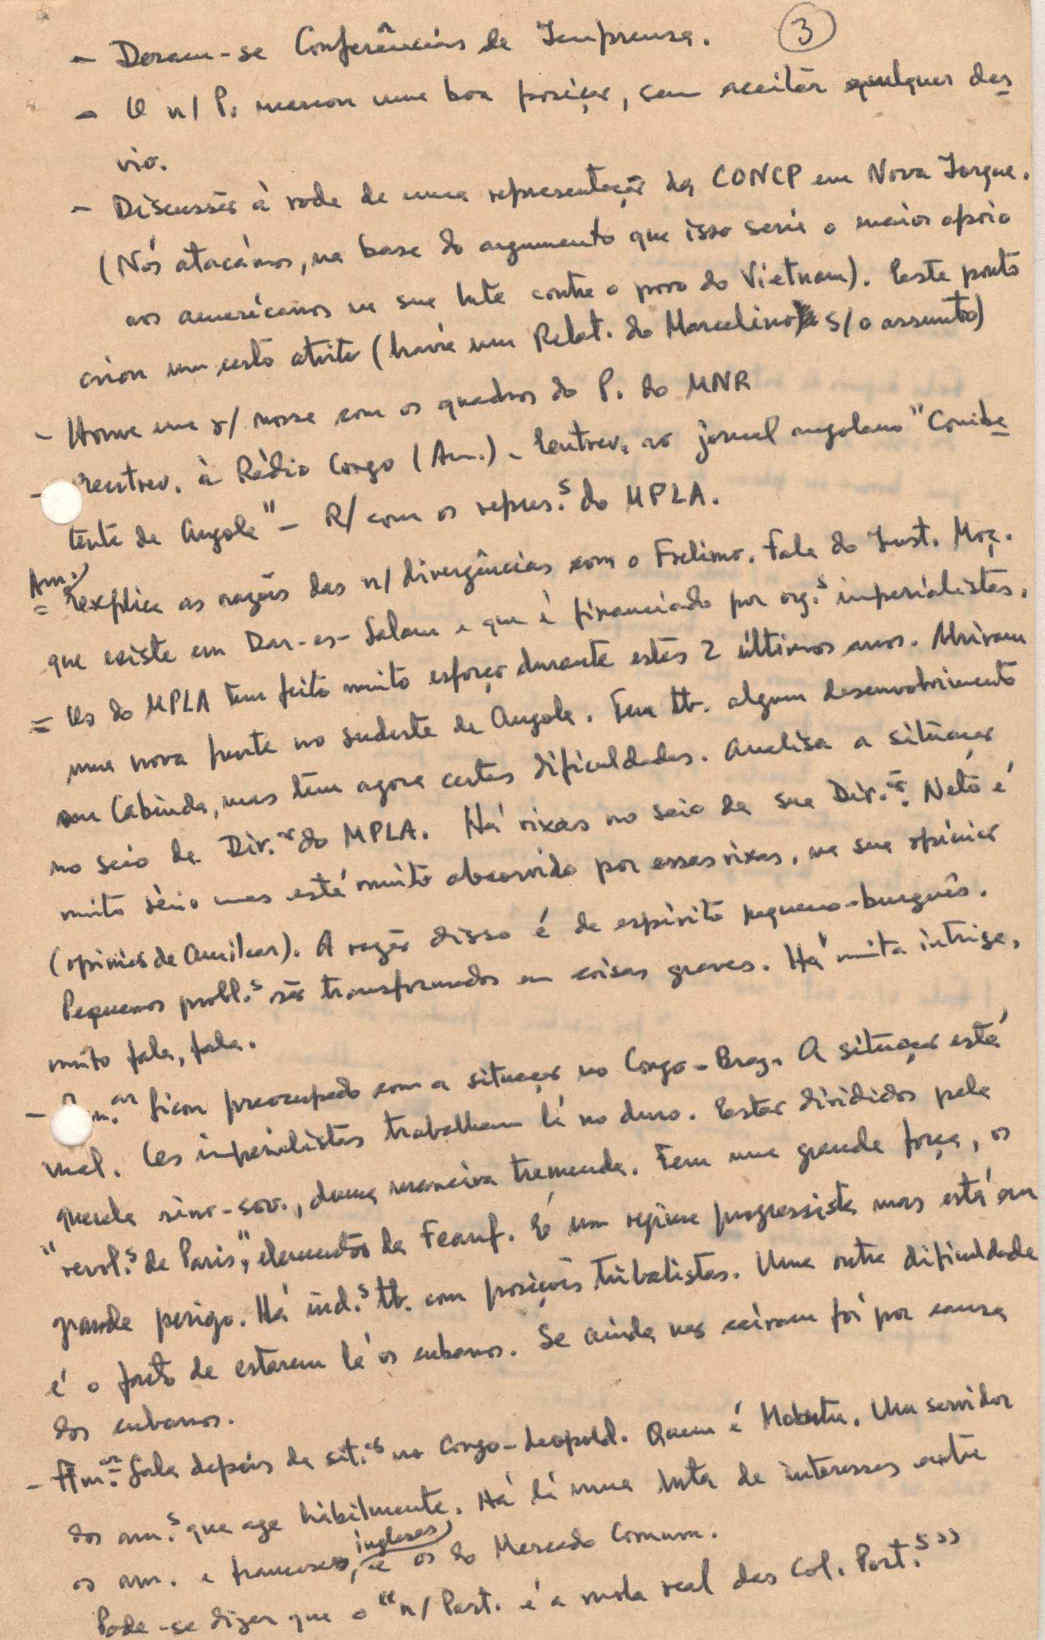 3
- Deram-se Conferências de Imprensa.
- O n/ P. marcou uma boa posição, sem aceitar qualquer des
vio.
- Discussão à roda de uma representação da CONCP em Nova Iorque.
(Nós atacámos, na base do argumento que isso seria o maior apoio
aos americanos na sua luta contra o povo do Vietnam). Este ponto
criou um certo atrito (havia um Relat. do Marcelino s/ o assunto)
- Houve uma r/ nossa com os quadros do P. do MNR
- entrev. à Rádio Congo (Am.) - Entrev. ao jornal angolano "Comba
tente de Angola" - R/ com os repres.s do MPLA.
= Am. explica as razões das n/ divergências com o Frelimo. Fala do Inst. Moç.
que existe em Dar-es-Salam e que é financiado por org.s imperialistas.
= Os do MPLA tem feito muito esforço durante estes 2 últimos anos. Abriram
uma nova frente no sudeste de Angola. Tem tb. algum desenvolvimento
em Cabinda, mas têm agora certas dificuldades. Analisa a situação
no seio da Dir.ão do MPLA. Há rixas no seio da sua Dir.ão. Neto é
muito sério mas está muito absorvido por essas rixas, na sua opinião
(opinião de Amilcar). A razão disso é de espírito pequeno-burguês.
Pequenos probl.s são transformados em coisas graves. Há muita intriga,
muito fala, fala.
- Am.ar ficou preocupado com a situação no Congo-Braz. A situação está
mal. Os imperialistas trabalham lá no duro. Estão divididos pela
querela sino-sov., duma maneira tremenda. Tem uma grande força, os
"revol.s de Paris", elementos da Feanf. É um regime progressista mas está em
grande perigo. Há ind.s tb. com posições tribalistas. Uma outra dificuldade
é o facto de estarem lá os cubanos. Se ainda não caíram foi por causa
dos cubanos.
- Am.ar fala depois da sit.ão no Congo-Leopold. Quem é Mobutu. Um servidor
dos am.s que age hàbilmente. Há lá uma luta de interesses entre
os am. e franceses, ingleses e os do Mercado Comum.
Pode-se dizer que o "n/ Part. é a mola real das Col. Port.s"